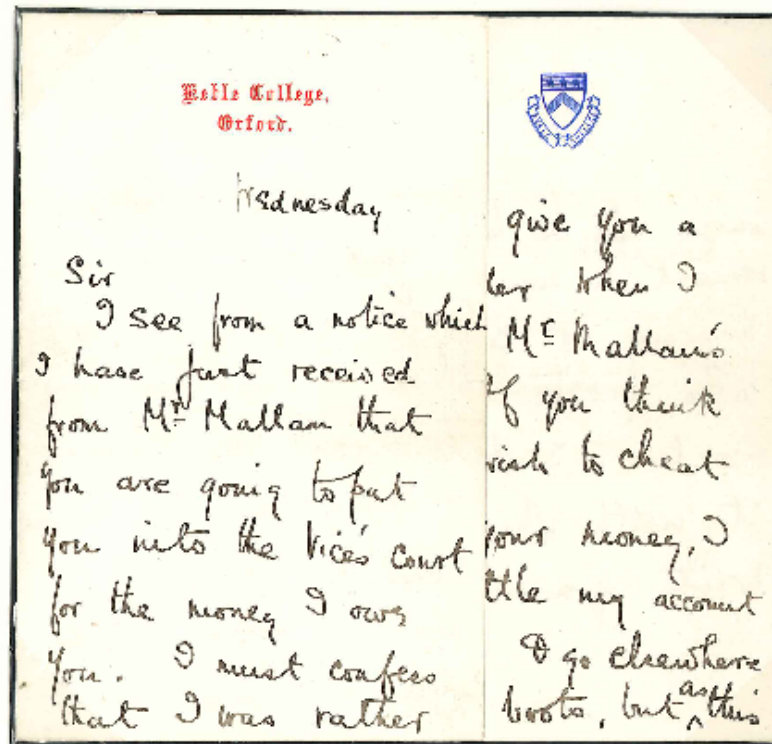 Keble College,
Oxford.
Wednesday
Sir
I see from a notice which
I have just received
from Mr Mallam that
you are going to put
you into the Vice's court
for the money I owe
you. I must confess
that I was rather
give you a
when I
Mr Mallam's
If you think
wish to cheat
your money, I
ttle my account
& go elsewhere
boots, but as this